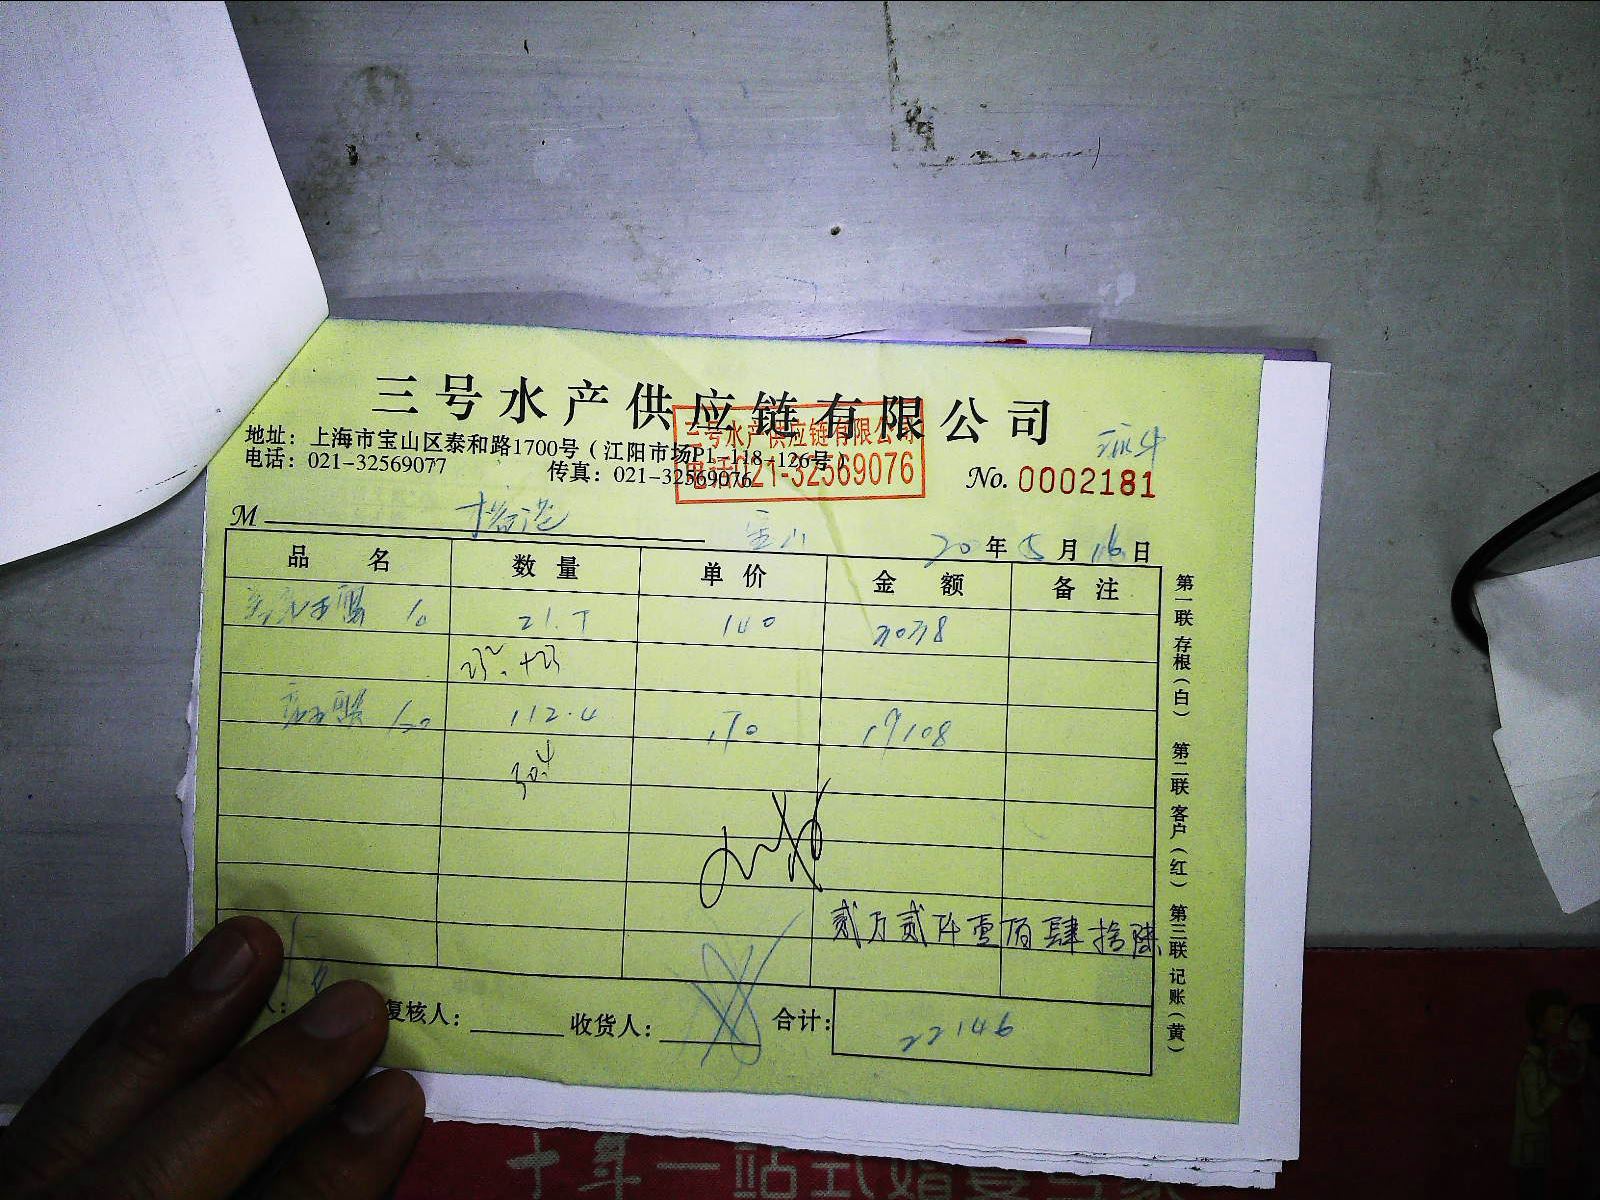 三号水产供应链有限公司
地址：上海市宝山区泰和路1700号（江阳市场P1-118-126号）
电话：021-32569077 传真：021-32569076
三号水产供应链有限公司
电话021-32569076
No. 0002181
M 宝山 20年5月16日
品名 数量 单价 金额 备注
21.7 140 3038
112.4 170 19108
30.4
贰万贰仟壹佰肆拾陆
人： 复核人： 收货人： 合计： 22146
第一联 存根（白） 第二联 客户（红） 第三联 记账（黄）
十年一站式婚宴专家